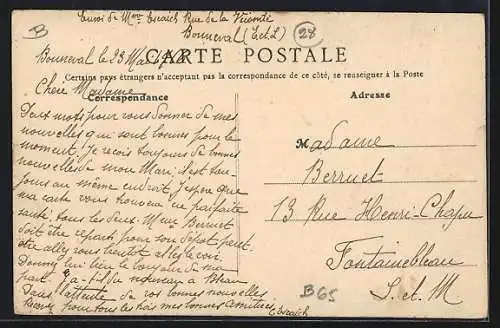 B
Envoi de Mme Escaich Rue de la Vicomté
Bonneval (E et L)
28
Bonneval le 23 Mai
CARTE POSTALE
Certains pays étrangers n'acceptent pas la correspondance de ce côté, se renseigner à la Poste
Chere Madame
Correspondance
Adresse
Deux mots pour vous donner de mes
nouvelles qui sont bonnes pour le
moment. Je reçois toujours de bonnes
nouvelles de mon Mari il est tou-
jours au même endroit J'espere que
ma carte vous trouvera en parfaite
santé tous les deux. Mme Berruet
doit être reparti pour son dépôt peut-
être allez vous bientôt allez le voir.
Donnez lui bien le bonjour de ma
part. Y a-t-il du nouveau à
Dans l'attente de vos bonnes nouvelles
Recevez pour tous les trois mes bonnes Amitiés
Escaich
Madame
Berruet
13 Rue Henri-Chapu
Fontainebleau
S. et M
B65